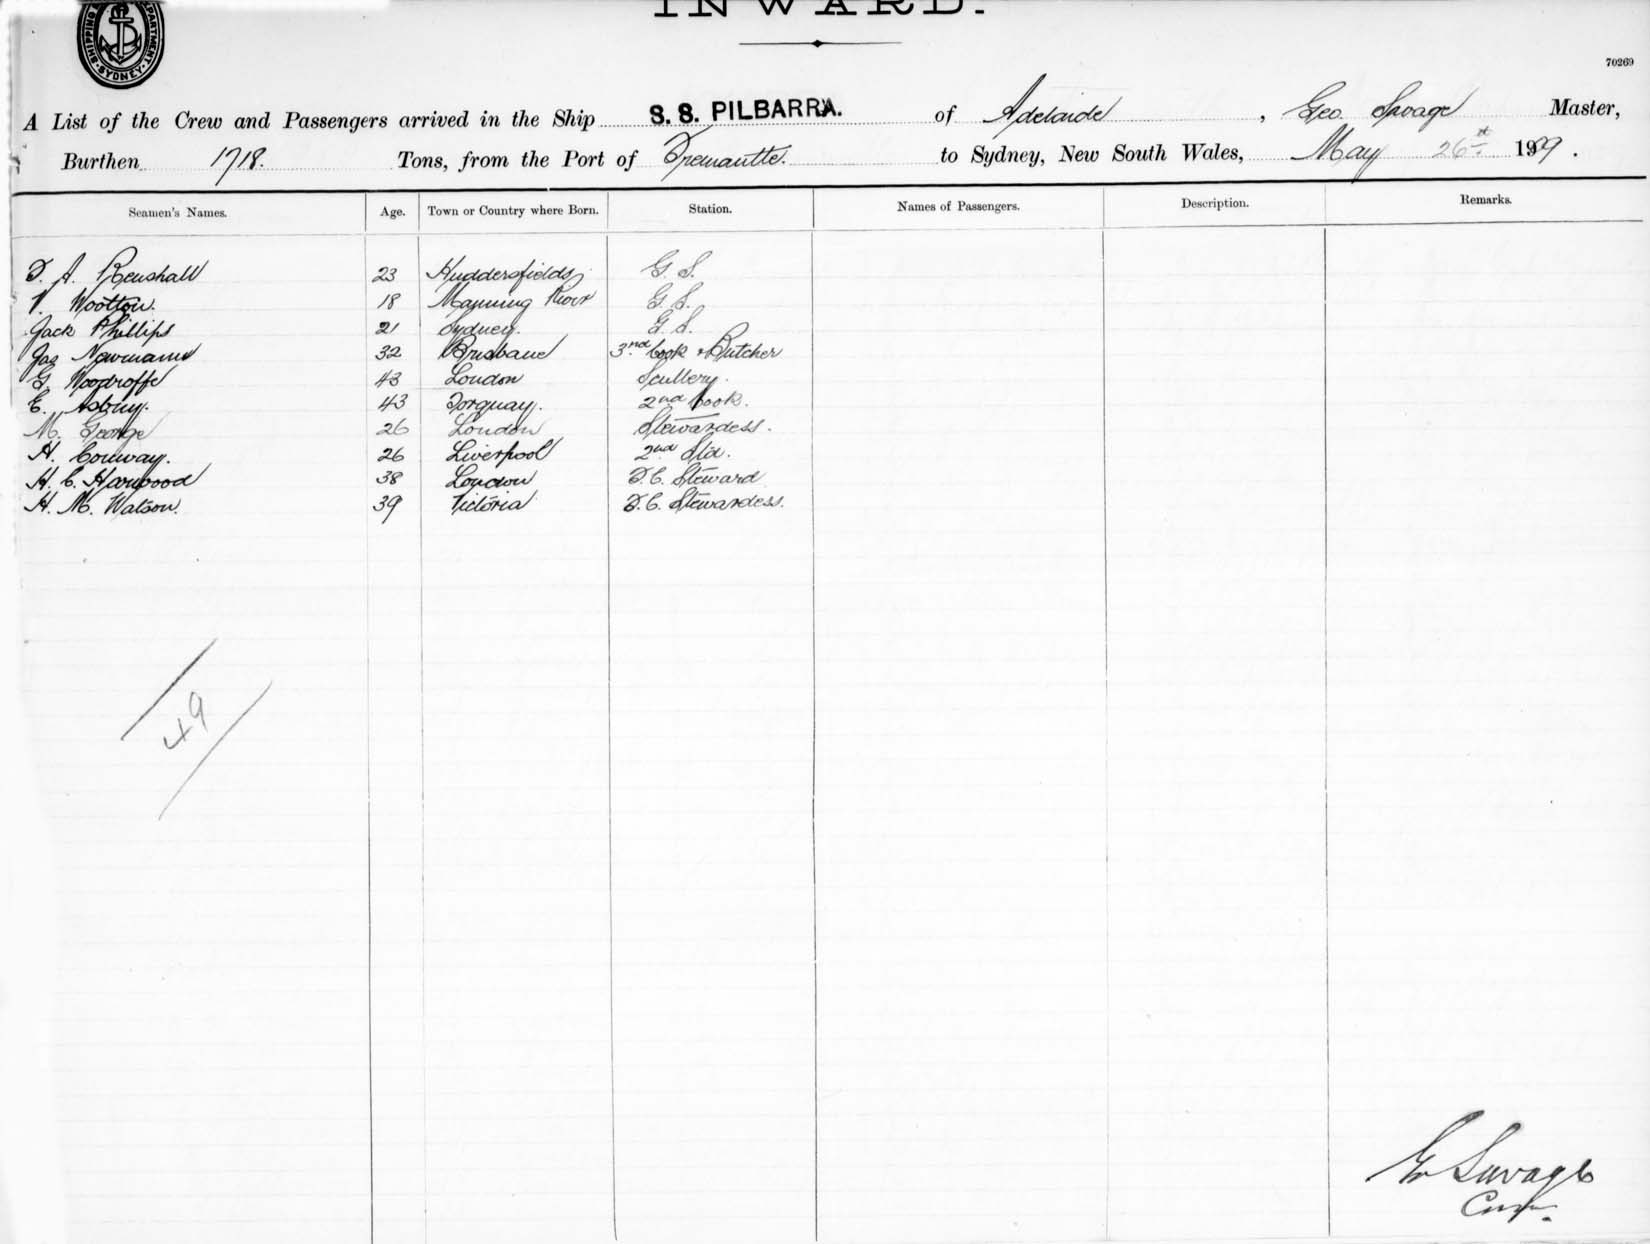 INWARD.
SHIPPING DEPARTMENT SYDNEY
70269
A List of the Crew and Passengers arrived in the Ship S. S. PILBARRA. of Adelaide, Geo. Savage Master,
Burthen 1718. Tons, from the Port of Fremantle. to Sydney, New South Wales, May 26th 1909.
Seamen's Names. Age. Town or Country where Born. Station. Names of Passengers. Description. Remarks.
A. Renshall 23 Huddersfields G. S.
Wootton. 18 Manning River G. S.
Jack Phillips 21 Sydney. G. S.
Jas Newmann 32 Brisbane 3rd Cook & Butcher
G. Woodroffe 43 London Scullery.
E. Asbury. 43 Torquay. 2nd Cook.
M. George 26 London Stewardess.
H. Conway. 26 Liverpool 2nd Std.
H. C. Harwood 38 London F. C. Steward
H. M. Watson. 39 Victoria F. C. Stewardess.
49
Geo Savage